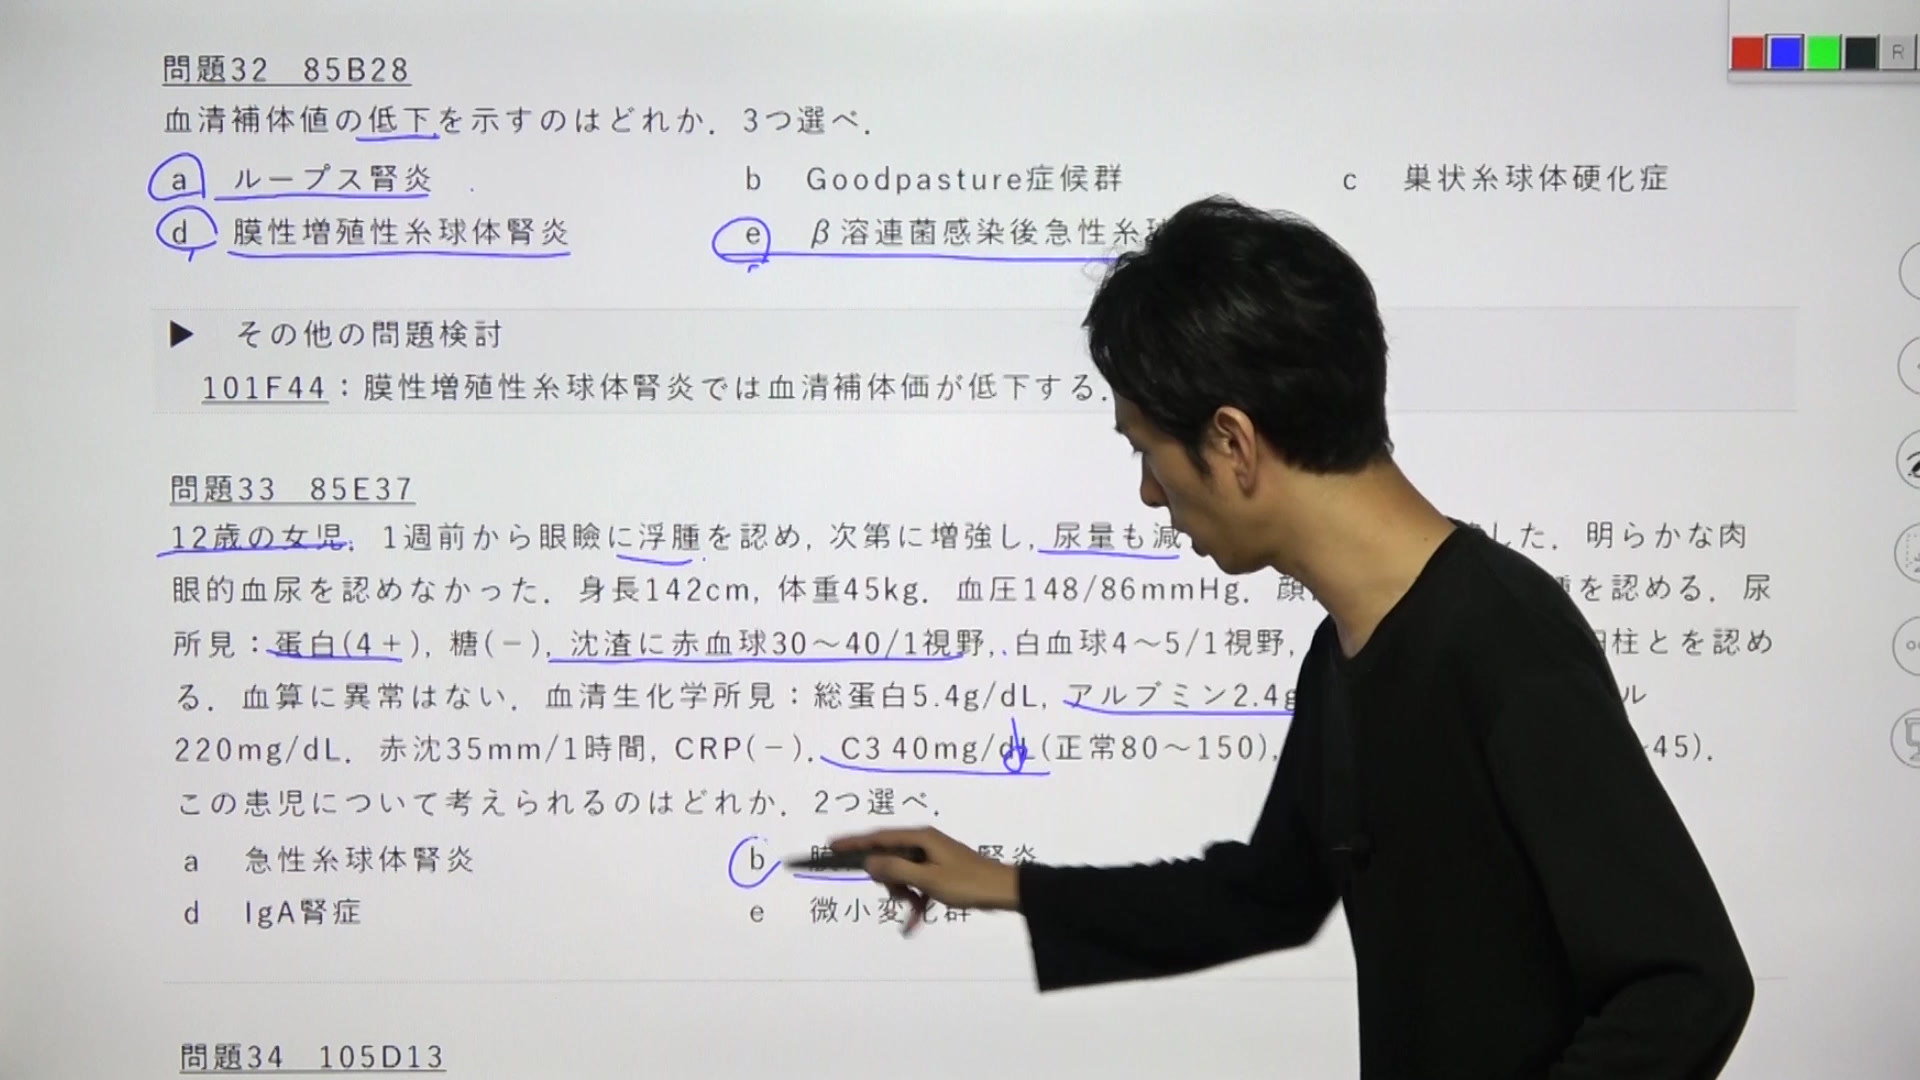 R
問題32 85B28
血清補体値の低下を示すのはどれか．3つ選べ．
a ループス腎炎 b Goodpasture症候群 c 巣状糸球体硬化症
d 膜性増殖性糸球体腎炎 e β溶連菌感染後急性糸
▶ その他の問題検討
101F44：膜性増殖性糸球体腎炎では血清補体価が低下する．
問題33 85E37
12歳の女児．1週前から眼瞼に浮腫を認め, 次第に増強し, 尿量も減 した．明らかな肉
眼的血尿を認めなかった．身長142cm, 体重45kg．血圧148/86mmHg．顔 を認める．尿
所見：蛋白(4＋), 糖(－), 沈渣に赤血球30～40/1視野, 白血球4～5/1視野, 柱とを認め
る．血算に異常はない．血清生化学所見：総蛋白5.4g/dL, アルブミン2.4g ル
220mg/dL．赤沈35mm/1時間, CRP(－)．C3 40mg/dL(正常80～150), 45)．
この患児について考えられるのはどれか．2つ選べ．
a 急性糸球体腎炎 b 腎炎
d IgA腎症 e 微小変化群
問題34 105D13